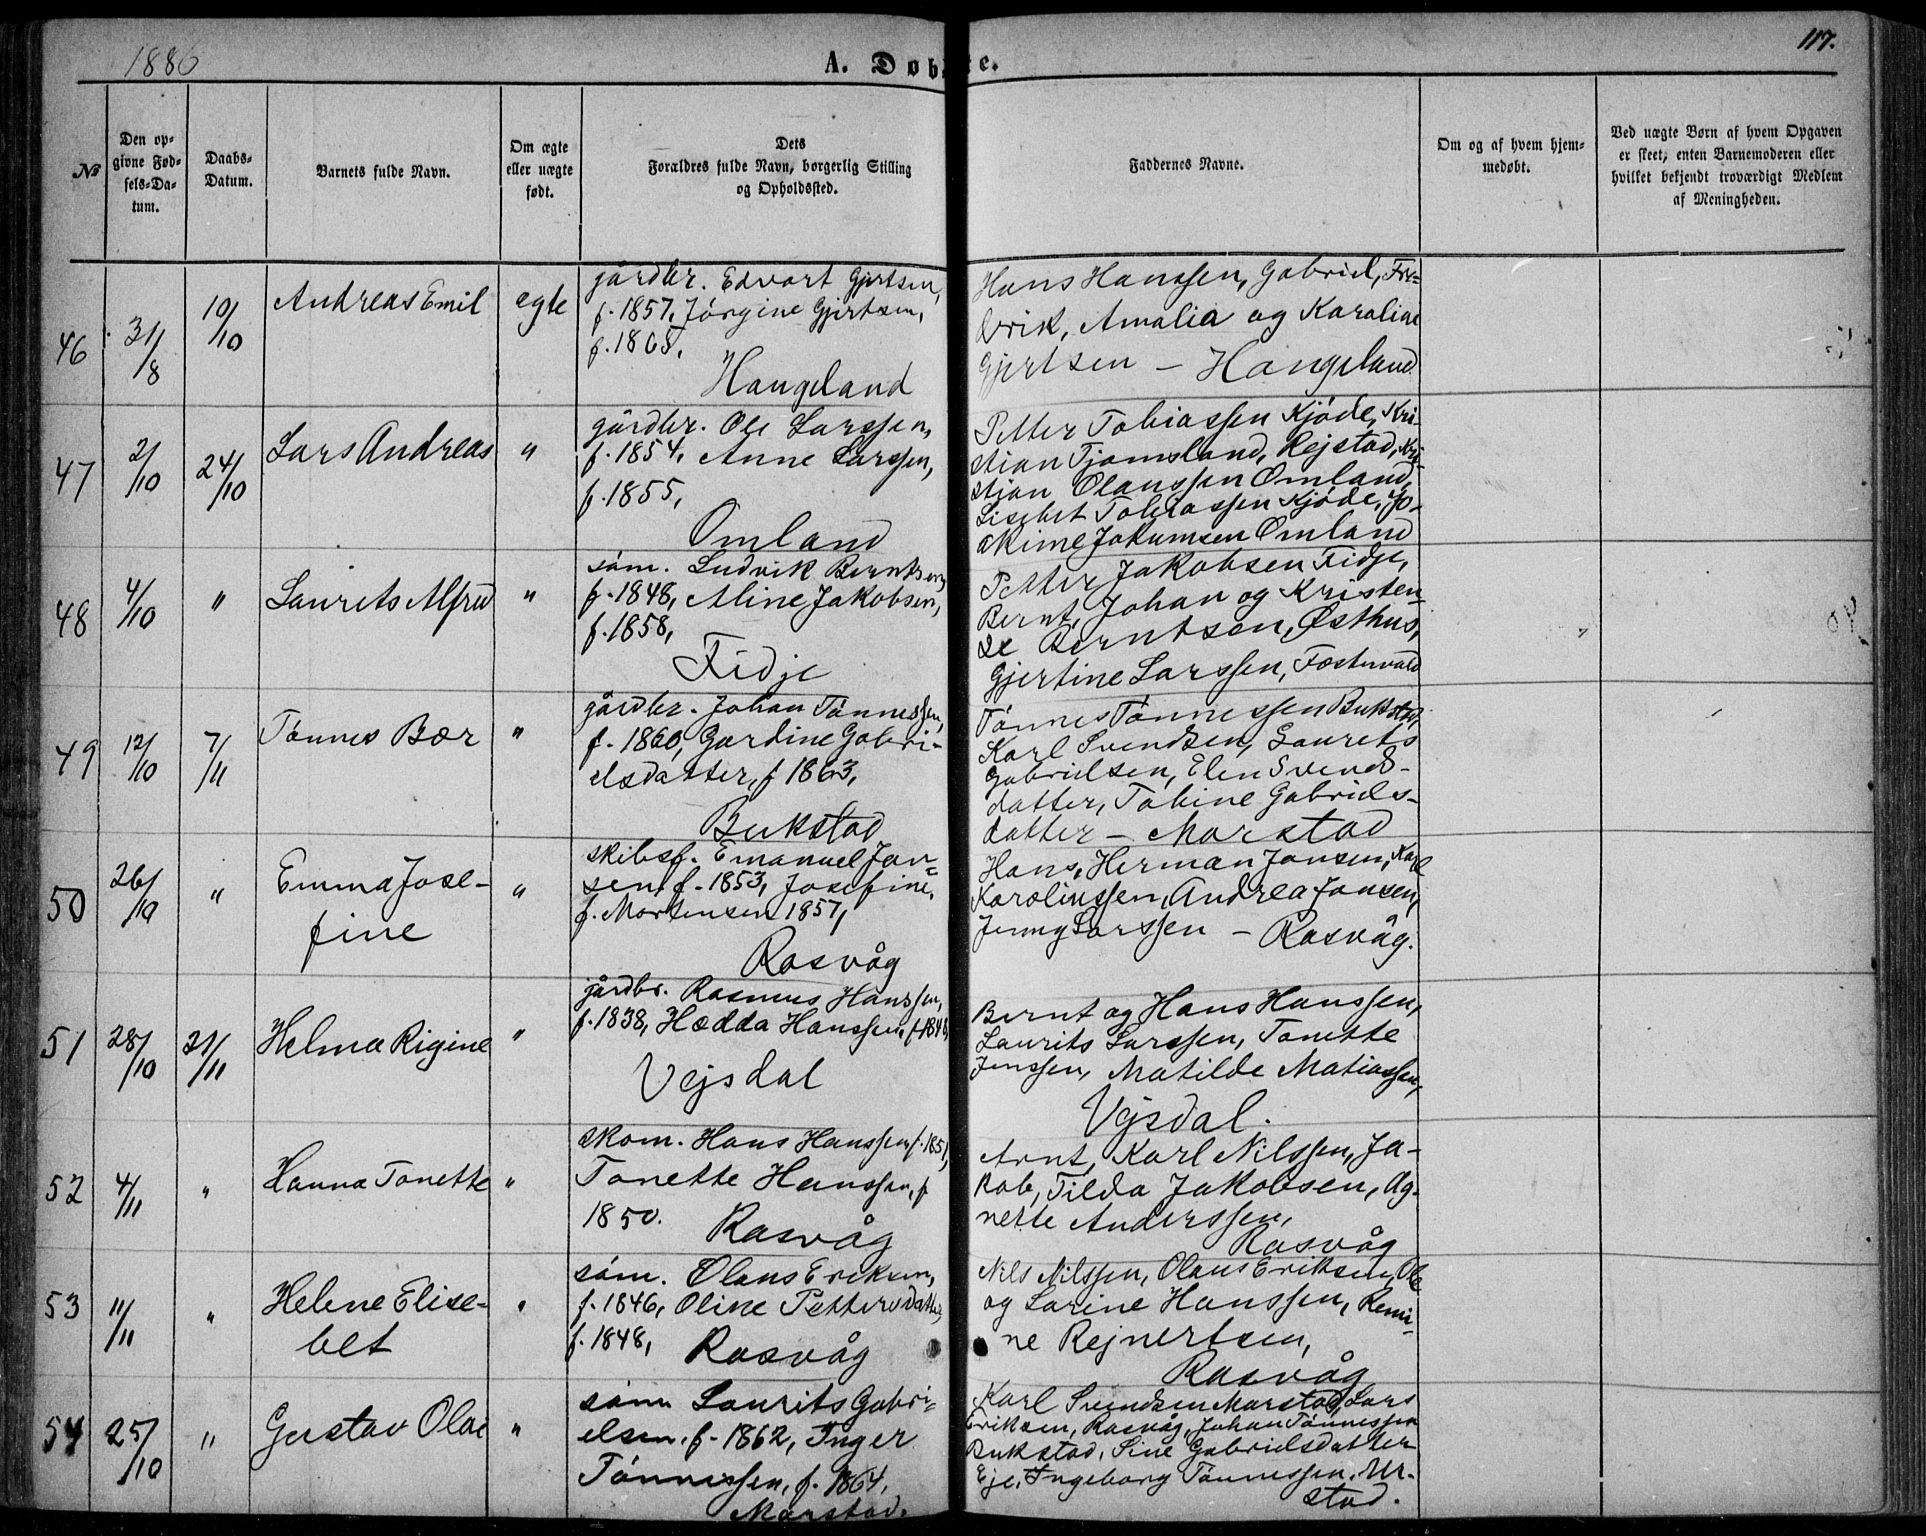 1886
A. Døbte.
117.
No
Den op-
givne Fød-
sels-Da-
tum.
Daabs-
Datum.
Barnets fulde Navn.
Om ægte
eller uægte
født.
Dets
Forældres fulde Navn, borgerlig Stilling
og Opholdssted.
Faddernes Navne.
Om og af hvem hjem-
medøbt.
Ved uægte Børn af hvem Opgaven
er skeet, enten Barnemoderen eller
hvilket bekjendt troværdigt Medlem
af Menigheden.
46
31/8
10/10
Andreas Emil
egte
gårdbr. Edvart Gjertsen,
f. 1857, Jörgine Gjertsen,
f. 1868,
Haugeland
Hans Hanssen, Gabriel, Fre-
drik, Amalia og Karoline
Gjertsen - Haugeland
47
2/10
24/10
Lars Andreas
"
gårdbr. Ole Larssen,
f. 1854, Anne Larssen,
f. 1855,
Omland
Petter Tobiassen Kjöde, Kri-
stian Tjomsland, Rejstad, Kri-
stian Olaussen Omland,
Lisebet Tobiassen Kjöde, Jo-
akime Jokumsen Omland
48
4/10
"
Laurits Alfred
"
söm. Ludvik Berntsen,
f. 1848, Aline Jakobsen,
f. 1858,
Fidje
Petter Jakobsen Fidje,
Bernt, Johan og Kristen-
se Berntsen, Østhus,
Gjertine Larssen, Fostervold
49
12/10
7/11
Tönnes Bær
"
gårdbr. Johan Tönnessen,
f. 1860, Gardine Gabri-
elsdatter, f 1863,
Bukstad
Tönnes Tönnessen Bukstad,
Karl Svendsen, Laurets
Gabrielsen, Elen Svends-
datter, Tobine Gabriels-
datter - Marstad
50
26/10
"
Emma Jose-
fine
"
skibsf. Emanuel Jan-
sen, f. 1853, Josefine,
f. Mortensen 1857,
Rasvåg
Hans, Herman Jansen, Karl
Karolinssen, Andrea Jansen,
Jenny Larssen - Rasvåg.
51
28/10
21/11
Helma Rigine
"
gårdbr. Rasmus Hanssen,
f. 1838, Hædda Hanssen, f 184
Vejsdal
Bernt og Hans Hanssen,
Laurits Larssen, Tonette
Jenssen, Matilde Matiassen,
Vejsdal.
52
4/11
"
Hanna Tonette
"
skom. Hans Hanssen f. 1851,
Tonette Hanssen, f
1850.
Rasvåg
Arnt, Karl Nilssen, Ja-
kob, Tilda Jakobsen, Ag-
nette Anderssen,
Rasvåg
53
11/11
"
Helene Elise-
bet
"
söm. Olaus Eriksen,
f. 1846, Oline Pettersdatter,
f. 1848,
Rasvåg
Nils Nilssen, Olaus Eriksen, Ole
og Larine Hanssen, Remi-
ne Rejnertsen,
Rasvåg
54
25/10
"
Gustav Olai
"
söm Laurits Gabri-
elsen, f. 1862, Inger
Tönnessen, f. 1864,
Marstad.
Karl Svendsen Marstad, Lars
Eriksen, Rasvåg, Johan Tönnessen
Bukstad, Sine Gabrielsdatter
Eje, Ingeborg Tönnessen, Ur-
stad.